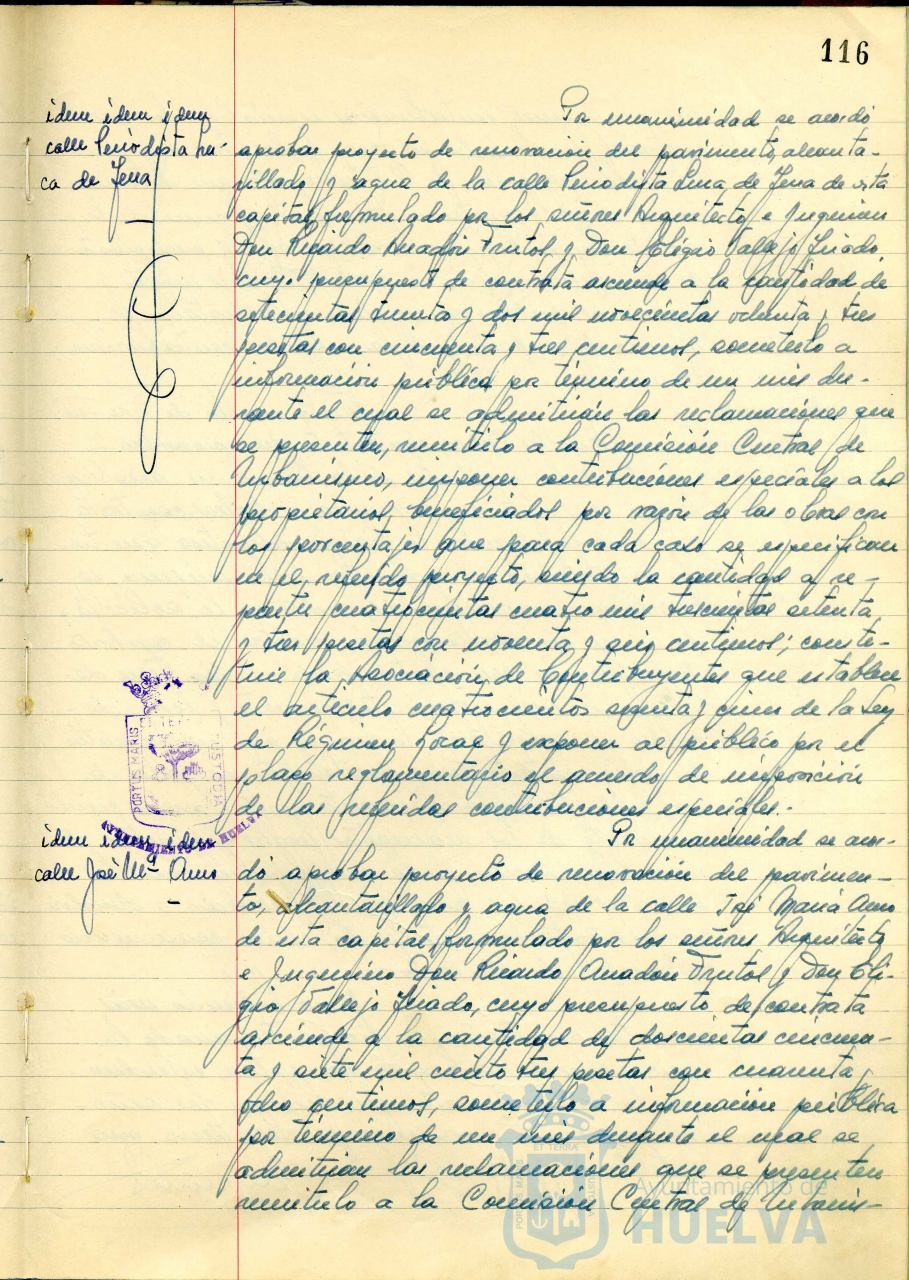 116
idem idem idem
calle Periodista Lu-
ca de Tena
Por unanimidad se acordó
aprobar proyecto de renovación del pavimento, alcanta-
rillado y agua de la calle Periodista Luca de Tena de esta
capital, formulado por los señores Arquitecto e Ingeniero
Don Ricardo Anadón Frutos y Don Eligio Vallejo
cuyo presupuesto de contrata asciende a la cantidad de
setecientas treinta y dos mil novecientas ochenta y tres
pesetas con cincuenta y tres centimos, someterlo a
información pública por término de un mes du-
rante el cual se admitirán las reclamaciones que
se presenten, remitirlo a la Comisión Central de
Urbanismo, imponer contribuciones especiales a los
propietarios beneficiados por razón de las obras con
los porcentajes que para cada caso se especifican
en el referido proyecto, siendo la cantidad a re-
partir cuatrocientas cuatro mil trescientas setenta
y tres pesetas con noventa y seis centimos; consti-
tuir la Asociación de Contribuyentes que establece
el artículo cuatrocientos sesenta y cinco de la Ley
de Régimen Local y exponer al público por el
plazo reglamentario el acuerdo de imposición
de las referidas contribuciones especiales.-
PORTUS MARIS ET TERRÆ CUSTODIA
AYUNTAMIENTO DE HUELVA
idem idem idem
calle José Mª Amo
Por unanimidad se acor-
dó aprobar proyecto de renovación del pavimen-
to, alcantarillado y agua de la calle José María Amo
de esta capital, formulado por los señores Arquitecto
e Ingeniero Don Ricardo Anadón Frutos y Don Eli-
gio Vallejo cuyo presupuesto de contrata
asciende a la cantidad de doscientas cincuen-
ta y siete mil ciento tres pesetas con cuarenta y
ocho centimos, someterlo a información pública
por término de un mes durante el cual se
admitirán las reclamaciones que se presenten
remitirlo a la Comisión Central de Urbanis-
Ayuntamiento de
HUELVA